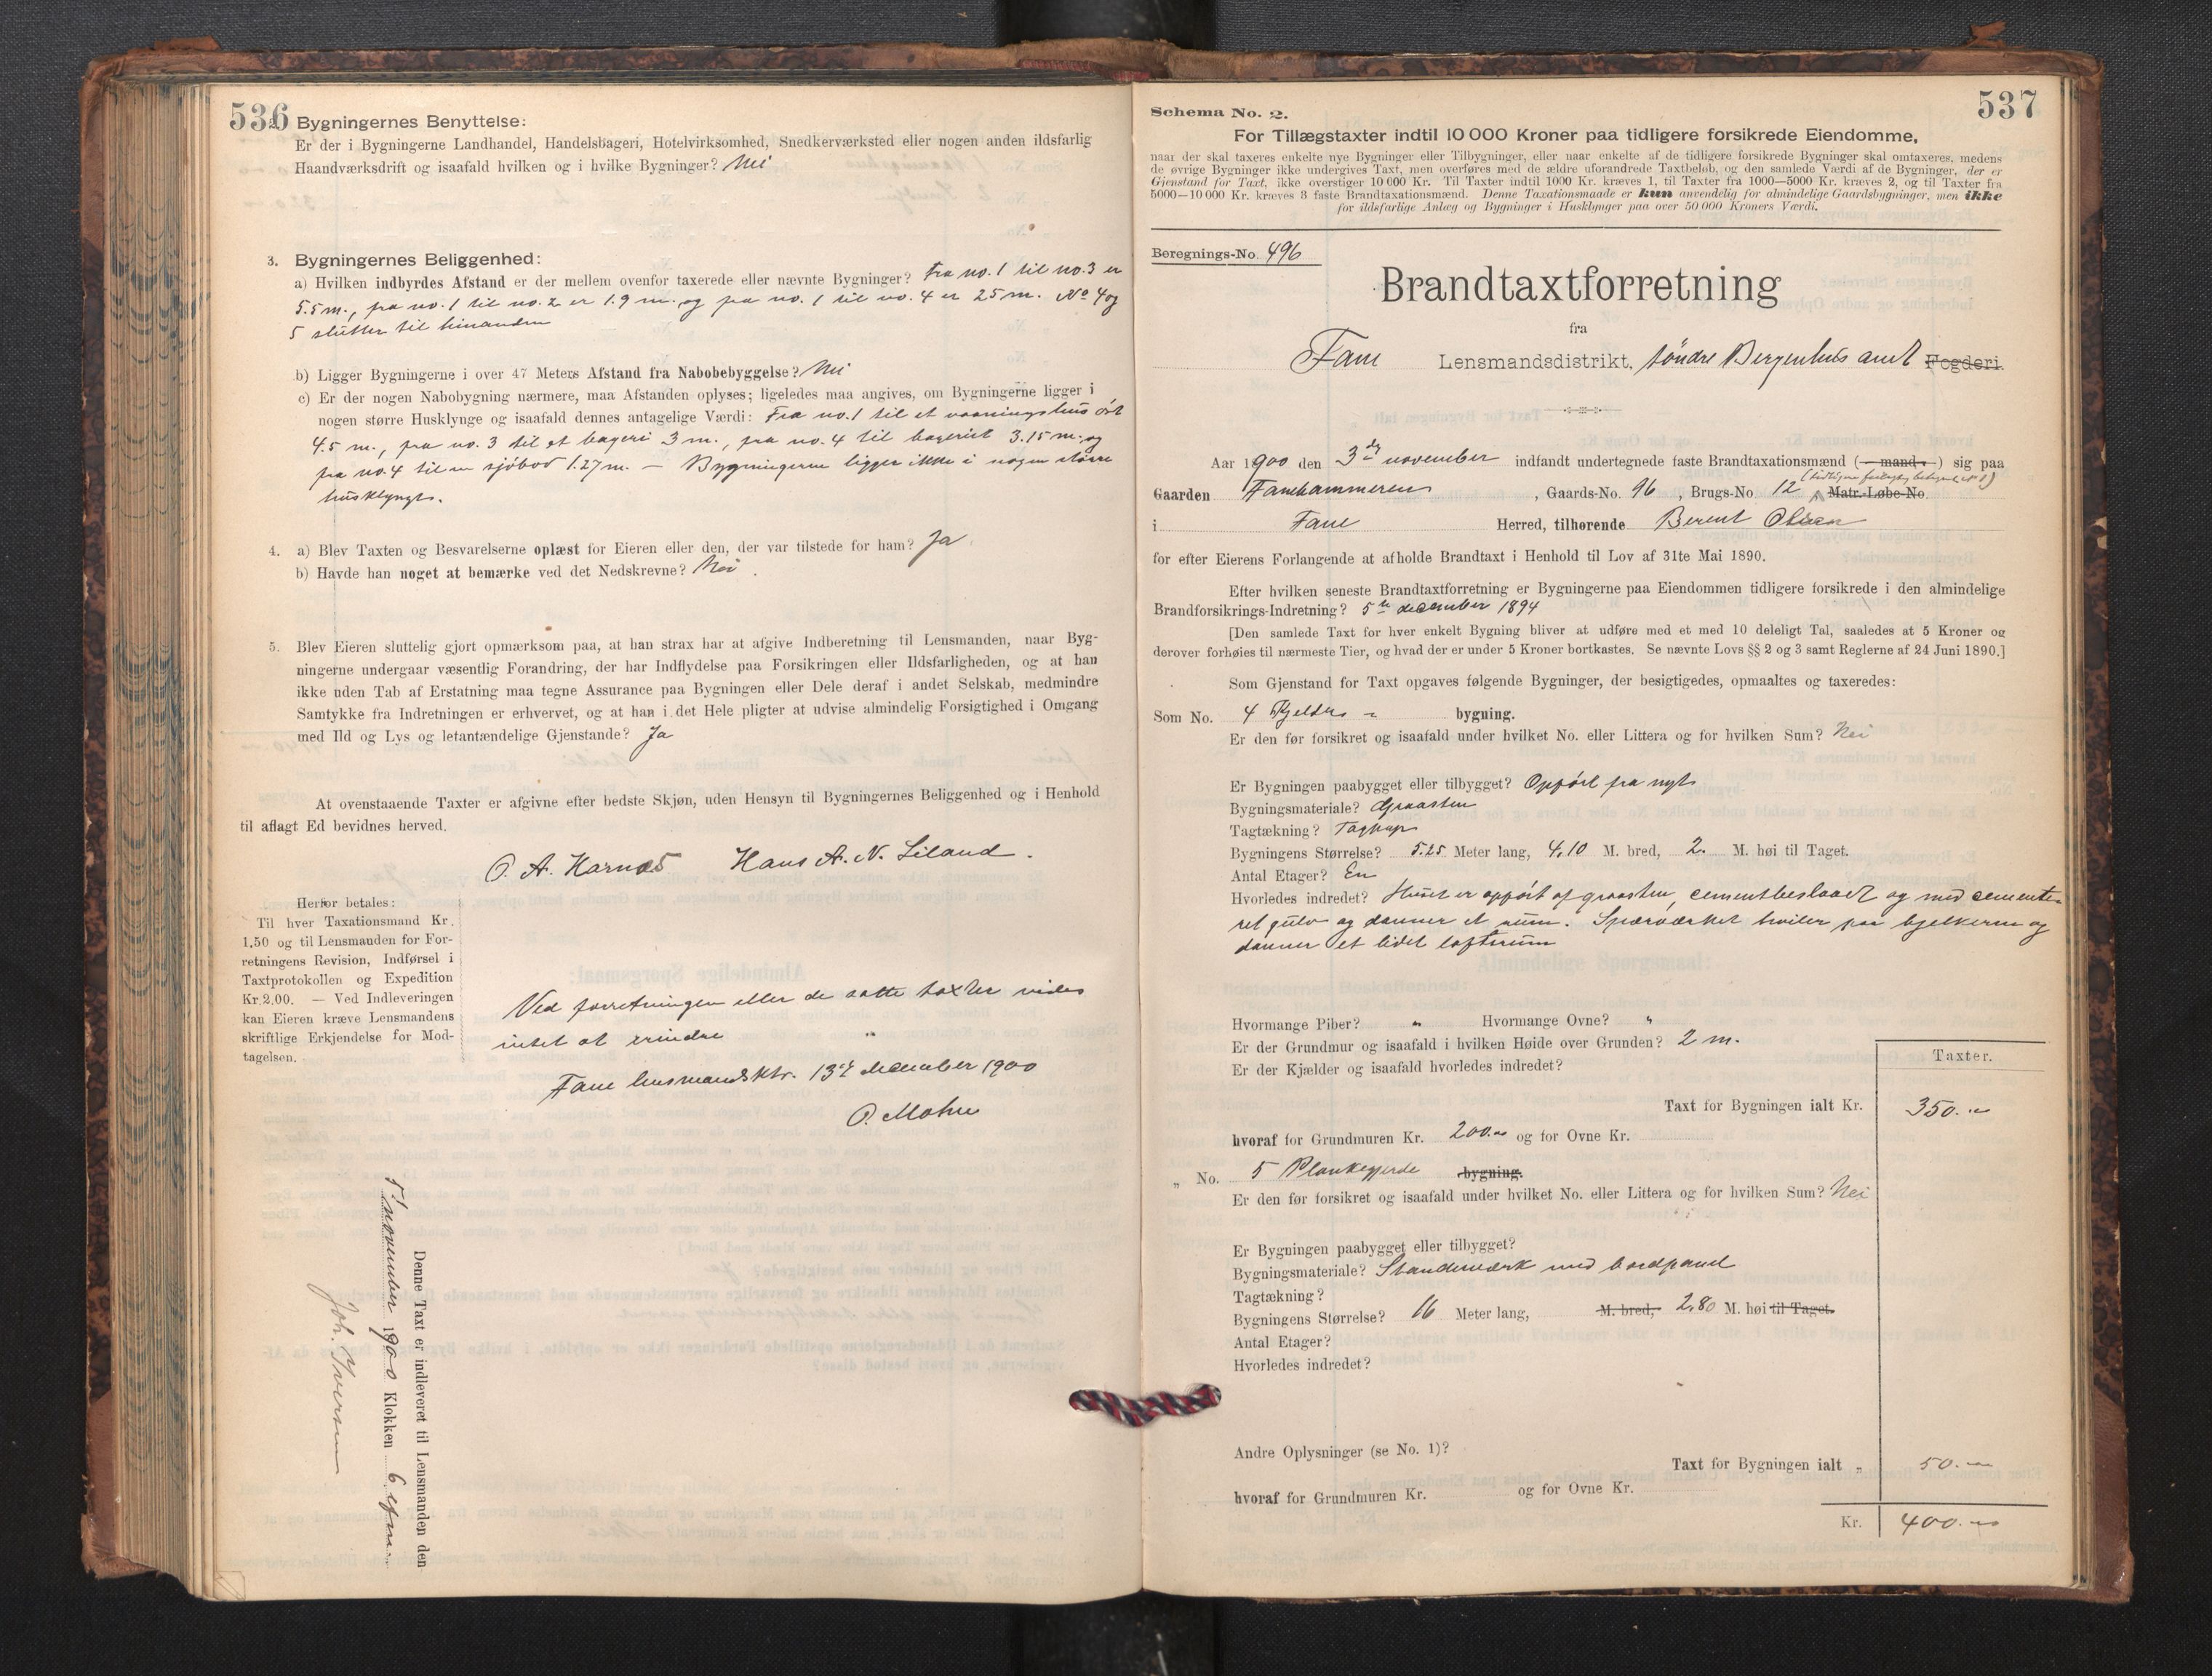 536
2. Bygningernes Benyttelse:
Er der i Bygningerne Landhandel, Handelsbageri, Hotelvirksomhed, Snedkerværksted eller nogen anden ildsfarlig
Haandværksdrift og isaafald hvilken og i hvilke Bygninger? Nei
3. Bygningernes Beliggenhed:
a) Hvilken indbyrdes Afstand er der mellem ovenfor taxerede eller nævnte Bygninger? Fra no. 1 til no. 3 er
5.5 m., fra no. 1 til no. 2 er 1.9 m. og fra no. 1 til no. 4 er 25 m. No 4 og
5 slutter til hinanden
b) Ligger Bygningerne i over 47 Meters Afstand fra Nabobebyggelse? Nei
c) Er der nogen Nabobygning nærmere, maa Afstanden oplyses; ligeledes maa angives, om Bygningerne ligger i
nogen større Husklynge og isaafald dennes antagelige Værdi: Fra no. 1 til et vaaningshus öst
4.5 m., fra no. 3 til et bageri 3 m., fra no. 4 til bageriet 3.15 m. og
fra no. 4 til en sjöbod 1.27 m. — Bygningerne ligger ikke i nogen större
husklynge.
4. a) Blev Taxten og Besvarelserne oplæst for Eieren eller den, der var tilstede for ham? Ja
b) Havde han noget at bemærke ved det Nedskrevne? Nei.
5. Blev Eieren sluttelig gjort opmærksom paa, at han strax har at afgive Indberetning til Lensmanden, naar Byg-
ningerne undergaar væsentlig Forandring, der har Indflydelse paa Forsikringen eller Ildsfarligheden, og at han
ikke uden Tab af Erstatning maa tegne Assurance paa Bygningen eller Dele deraf i andet Selskab, medmindre
Samtykke fra Indretningen er erhvervet, og at han i det Hele pligter at udvise almindelig Forsigtighed i Omgang
med Ild og Lys og letantændelige Gjenstande? Ja
At ovenstaaende Taxter er afgivne efter bedste Skjøn, uden Hensyn til Bygningernes Beliggenhed og i Henhold
til aflagt Ed bevidnes herved.
O. A. Harnæs Hans A. N. Liland.
Herfor betales:
Til hver Taxationsmand Kr.
1,50 og til Lensmanden for For-
retningens Revision, Indførsel i
Taxtprotokollen og Expedition
Kr. 2.00. — Ved Indleveringen
kan Eieren kræve Lensmandens
skriftlige Erkjendelse for Mod-
tagelsen.
Ved forretningen eller de satte taxter vides
intet at erindre
Fane lensmandsktr. 13de december 1900
O. Mohn
Denne Taxt er indleveret til Lensmanden den
5/ november 1900 Klokken 6 efm.
Joh. Iversen
537
Schema No. 2.
For Tillægstaxter indtil 10 000 Kroner paa tidligere forsikrede Eiendomme,
naar der skal taxeres enkelte nye Bygninger eller Tilbygninger, eller naar enkelte af de tidligere forsikrede Bygninger skal omtaxeres, medens
de øvrige Bygninger ikke undergives Taxt, men overføres med de ældre uforandrede Taxtbeløb, og den samlede Værdi af de Bygninger, der er
Gjenstand for Taxt, ikke overstiger 10 000 Kr. Til Taxter indtil 1000 Kr. kræves 1, til Taxter fra 1000—5000 Kr. kræves 2, og til Taxter fra
5000—10 000 Kr. kræves 3 faste Brandtaxationsmænd. Denne Taxationsmaade er kun anvendelig for almindelige Gaardsbygninger, men ikke
for ildsfarlige Anlæg og Bygninger i Husklynger paa over 50 000 Kroners Værdi.
Beregnings-No. 496
Brandtaxtforretning
fra
Fane Lensmandsdistrikt, söndre Bergenhus amt Fogderi.
Aar 1900 den 3de november indfandt undertegnede faste Brandtaxationsmænd (mand) sig paa
Gaarden Fanehammeren, Gaards-No. 96, Brugs-No. 12 Matr.-Løbe-No.
i Fane Herred, tilhørende Berent Olsen
for efter Eierens Forlangende at afholde Brandtaxt i Henhold til Lov af 31te Mai 1890.
Efter hvilken seneste Brandtaxtforretning er Bygningerne paa Eiendommen tidligere forsikrede i den almindelige
Brandforsikrings-Indretning? 5te december 1894
[Den samlede Taxt for hver enkelt Bygning bliver at udføre med et med 10 deleligt Tal, saaledes at 5 Kroner og
derover forhøies til nærmeste Tier, og hvad der er under 5 Kroner bortkastes. Se nævnte Lovs §§ 2 og 3 samt Reglerne af 24 Juni 1890.]
Som Gjenstand for Taxt opgaves følgende Bygninger, der besigtigedes, opmaaltes og taxeredes:
Som No. 4 Kjelder- bygning.
Er den før forsikret og isaafald under hvilket No. eller Littera og for hvilken Sum? Nei
Er Bygningen paabygget eller tilbygget? Opfört fra nyt
Bygningsmateriale? Graasten
Tagtækning? Tagpap
Bygningens Størrelse? 5.25 Meter lang, 4,10 M. bred, 2. M. høi til Taget.
Antal Etager? En
Hvorledes indredet? Huset er opfört af graasten, cementbeslaaet og med cemente-
ret gulv og danner et rum. Spærværket hviler paa bjelkerne og
danner et lidet loftsrum
Hvormange Piber? " Hvormange Ovne? "
Er der Grundmur og isaafald i hvilken Høide over Grunden? 2 m.
Er der Kjælder og isaafald hvorledes indredet?
Taxter.
Taxt for Bygningen ialt Kr. 350.-
hvoraf for Grundmuren Kr. 200.- og for Ovne Kr.
„ No. 5 Plankegjerde bygning.
Er den før forsikret og isaafald under hvilket No. eller Littera og for hvilken Sum? Nei
Er Bygningen paabygget eller tilbygget?
Bygningsmateriale? Standerværk med bordpanel
Tagtækning?
Bygningens Størrelse? 16 Meter lang, M. bred, 2.80 M. høi til Taget.
Antal Etager?
Hvorledes indredet?
Andre Oplysninger (se No. 1)?
Taxt for Bygningen ialt „ 50.-
hvoraf for Grundmuren Kr. og for Ovne Kr.
Kr. 400.-